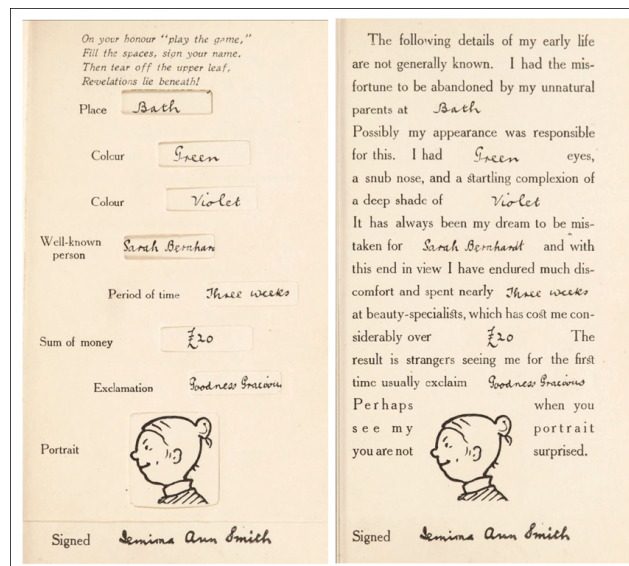 On your honour "play the game,"
Fill the spaces, sign your name.
Then tear off the upper leaf,
Revelations lie beneath!
Place Bath
Colour Green
Colour Violet
Well-known
person Sarah Bernhar
Period of time Three weeks
Sum of money £20
Exclamation Goodness Graciou
Portrait
Signed Jemima Ann Smith
The following details of my early life
are not generally known. I had the mis-
fortune to be abandoned by my unnatural
parents at Bath
Possibly my appearance was responsible
for this. I had Green eyes,
a snub nose, and a startling complexion of
a deep shade of Violet
It has always been my dream to be mis-
taken for Sarah Bernhardt and with
this end in view I have endured much dis-
comfort and spent nearly Three weeks
at beauty-specialists, which has cost me con-
siderably over £20 The
result is strangers seeing me for the first
time usually exclaim Goodness Gracious
Perhaps when you
see my portrait
you are not surprised.
Signed Jemima Ann Smith